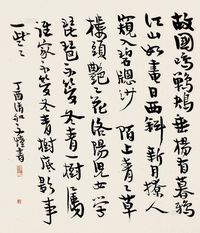 故國鳴鵜鴂垂楊有暮鴉
江山如畫日西斜新月撩人
窺入碧窗紗陌上青々草
樓頭艷々花洛陽兒女學
琵琶不管冬青一樹屬
誰家不管冬青樹底影事
一些々 丁酉清和